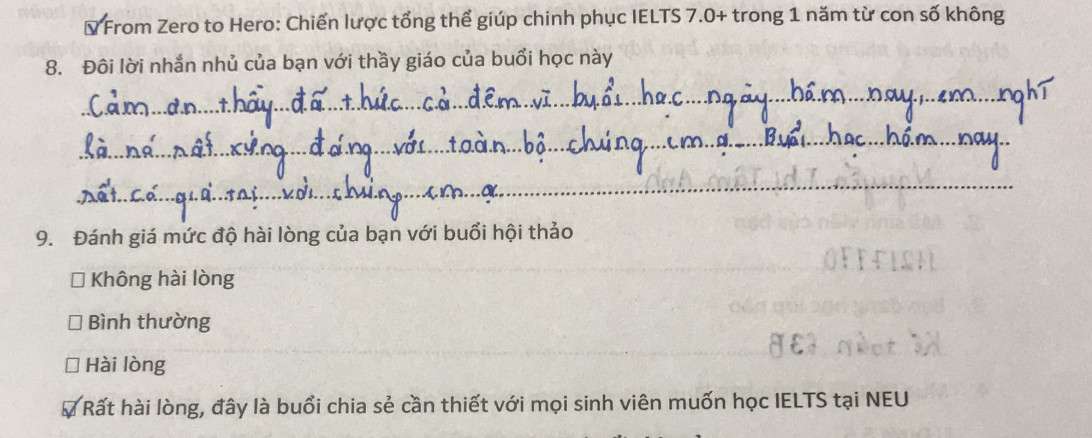 From Zero to Hero: Chiến lược tổng thể giúp chinh phục IELTS 7.0+ trong 1 năm từ con số không
8. Đôi lời nhắn nhủ của bạn với thầy giáo của buổi học này
Cảm ơn thầy đã thức cả đêm vì buổi học ngày hôm nay, em nghĩ
là nó rất xứng đáng với toàn bộ chúng em ạ. Buổi học hôm nay
rất có giá trị với chúng em ạ
9. Đánh giá mức độ hài lòng của bạn với buổi hội thảo
Không hài lòng
Bình thường
Hài lòng
Rất hài lòng, đây là buổi chia sẻ cần thiết với mọi sinh viên muốn học IELTS tại NEU